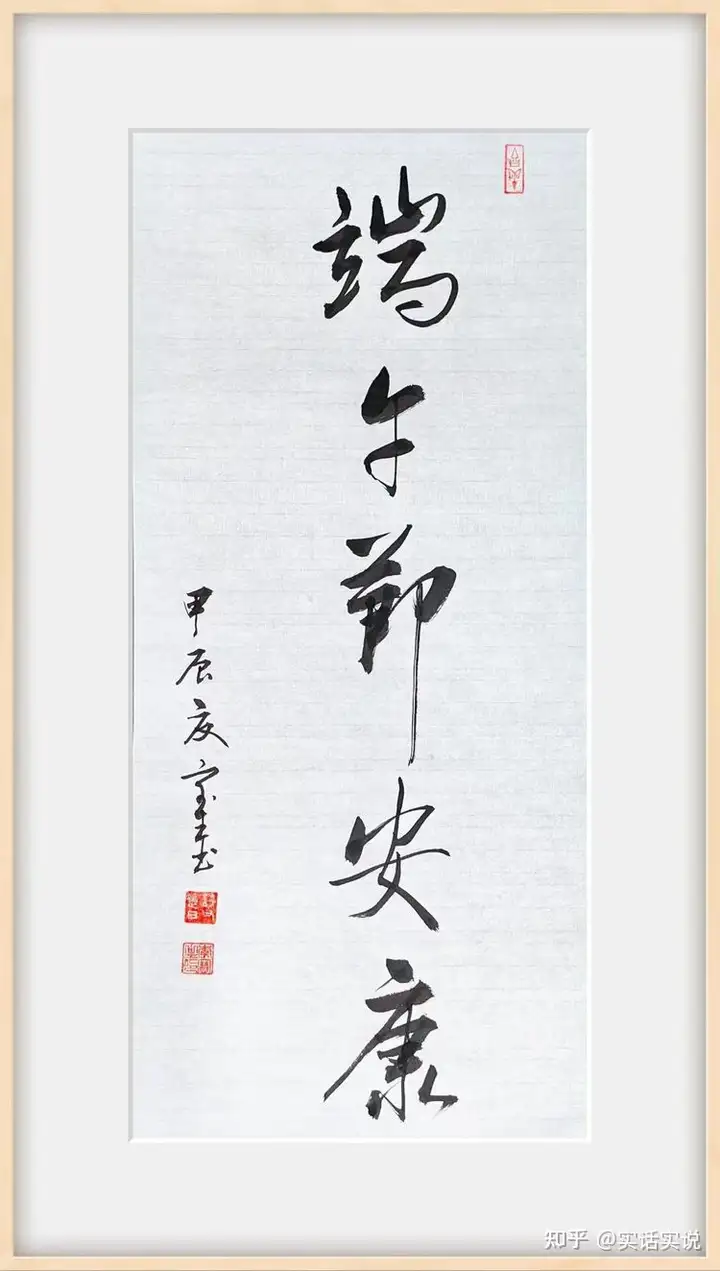 端午節安康
甲辰夏
知乎 @实话实说